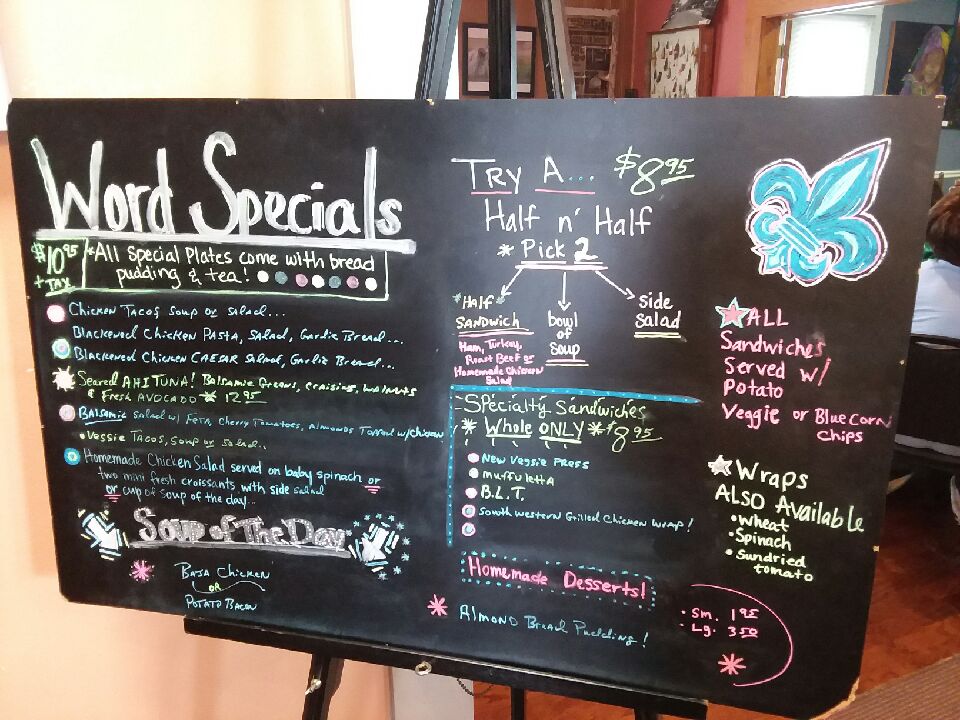 Word Specials
$10.95 + TAX
*All Special Plates come with bread
pudding & tea!
Chicken Tacos Soup or Salad...
Blackened Chicken Pasta, Salad, Garlic Bread...
Blackened Chicken CAESAR Salad, Garlic Bread...
Seared AHI TUNA! Balsamic Greens, craisins, walnuts
& Fresh AVOCADO * 12.95
Balsamic salad w/ Feta, Cherry Tomatoes, Almonds Topped w/ Chicken
• Veggie Tacos, Soup or Salad..
Homemade Chicken Salad served on baby spinach or
two mini fresh croissants with side salad
or cup of soup of the day...
Soup of The Day
Baja Chicken
OR
Potato Bacon
TRY A... $8.95
Half n' Half
* Pick 2
*Half*
SANDWICH
Ham, Turkey,
Roast Beef or
Homemade Chicken
Salad
bowl
of
soup
side
salad
Specialty Sandwiches
* Whole ONLY * $8.95
New Veggie Press
muffuletta
B.L.T.
Southwestern Grilled Chicken Wrap!
Homemade Desserts!
* Almond Bread Pudding!
• Sm. 1.95
• Lg. 3.50
*
ALL
Sandwiches
Served w/
Potato
Veggie or Blue Corn
Chips
Wraps
ALSO Available
• Wheat
• Spinach
• Sundried
tomato